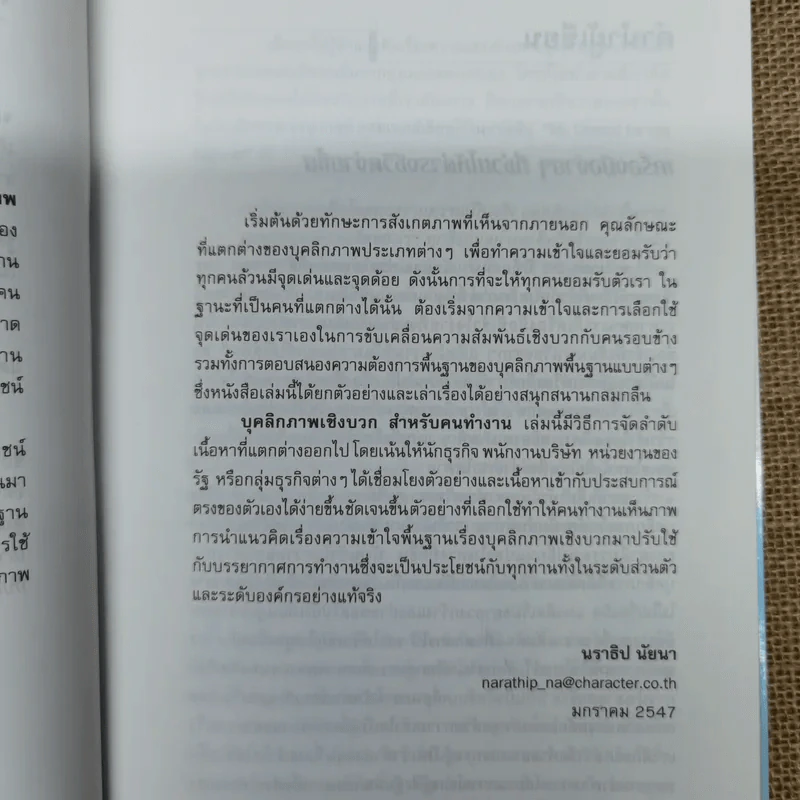 เริ่มต้นด้วยทักษะการสังเกตภาพที่เห็นจากภายนอก คุณลักษณะ
ที่แตกต่างของบุคลิกภาพประเภทต่างๆ เพื่อทำความเข้าใจและยอมรับว่า
ทุกคนล้วนมีจุดเด่นและจุดด้อย ดังนั้นการที่จะให้ทุกคนยอมรับตัวเรา ใน
ฐานะที่เป็นคนที่แตกต่างได้นั้น ต้องเริ่มจากความเข้าใจและการเลือกใช้
จุดเด่นของเราเองในการขับเคลื่อนความสัมพันธ์เชิงบวกกับคนรอบข้าง
รวมทั้งการตอบสนองความต้องการพื้นฐานของบุคลิกภาพพื้นฐานแบบต่างๆ
ซึ่งหนังสือเล่มนี้ได้ยกตัวอย่างและเล่าเรื่องได้อย่างสนุกสนานกลมกลืน
บุคลิกภาพเชิงบวก สำหรับคนทำงาน เล่มนี้มีวิธีการจัดลำดับ
เนื้อหาที่แตกต่างออกไป โดยเน้นให้นักธุรกิจ พนักงานบริษัท หน่วยงานของ
รัฐ หรือกลุ่มธุรกิจต่างๆ ได้เชื่อมโยงตัวอย่างและเนื้อหาเข้ากับประสบการณ์
ตรงของตัวเองได้ง่ายขึ้นชัดเจนขึ้นตัวอย่างที่เลือกใช้ทำให้คนทำงานเห็นภาพ
การนำแนวคิดเรื่องความเข้าใจพื้นฐานเรื่องบุคลิกภาพเชิงบวกมาปรับใช้
กับบรรยากาศการทำงานซึ่งจะเป็นประโยชน์กับทุกท่านทั้งในระดับส่วนตัว
และระดับองค์กรอย่างแท้จริง
นราธิป นัยนา
narathip_na@character.co.th
มกราคม 2547